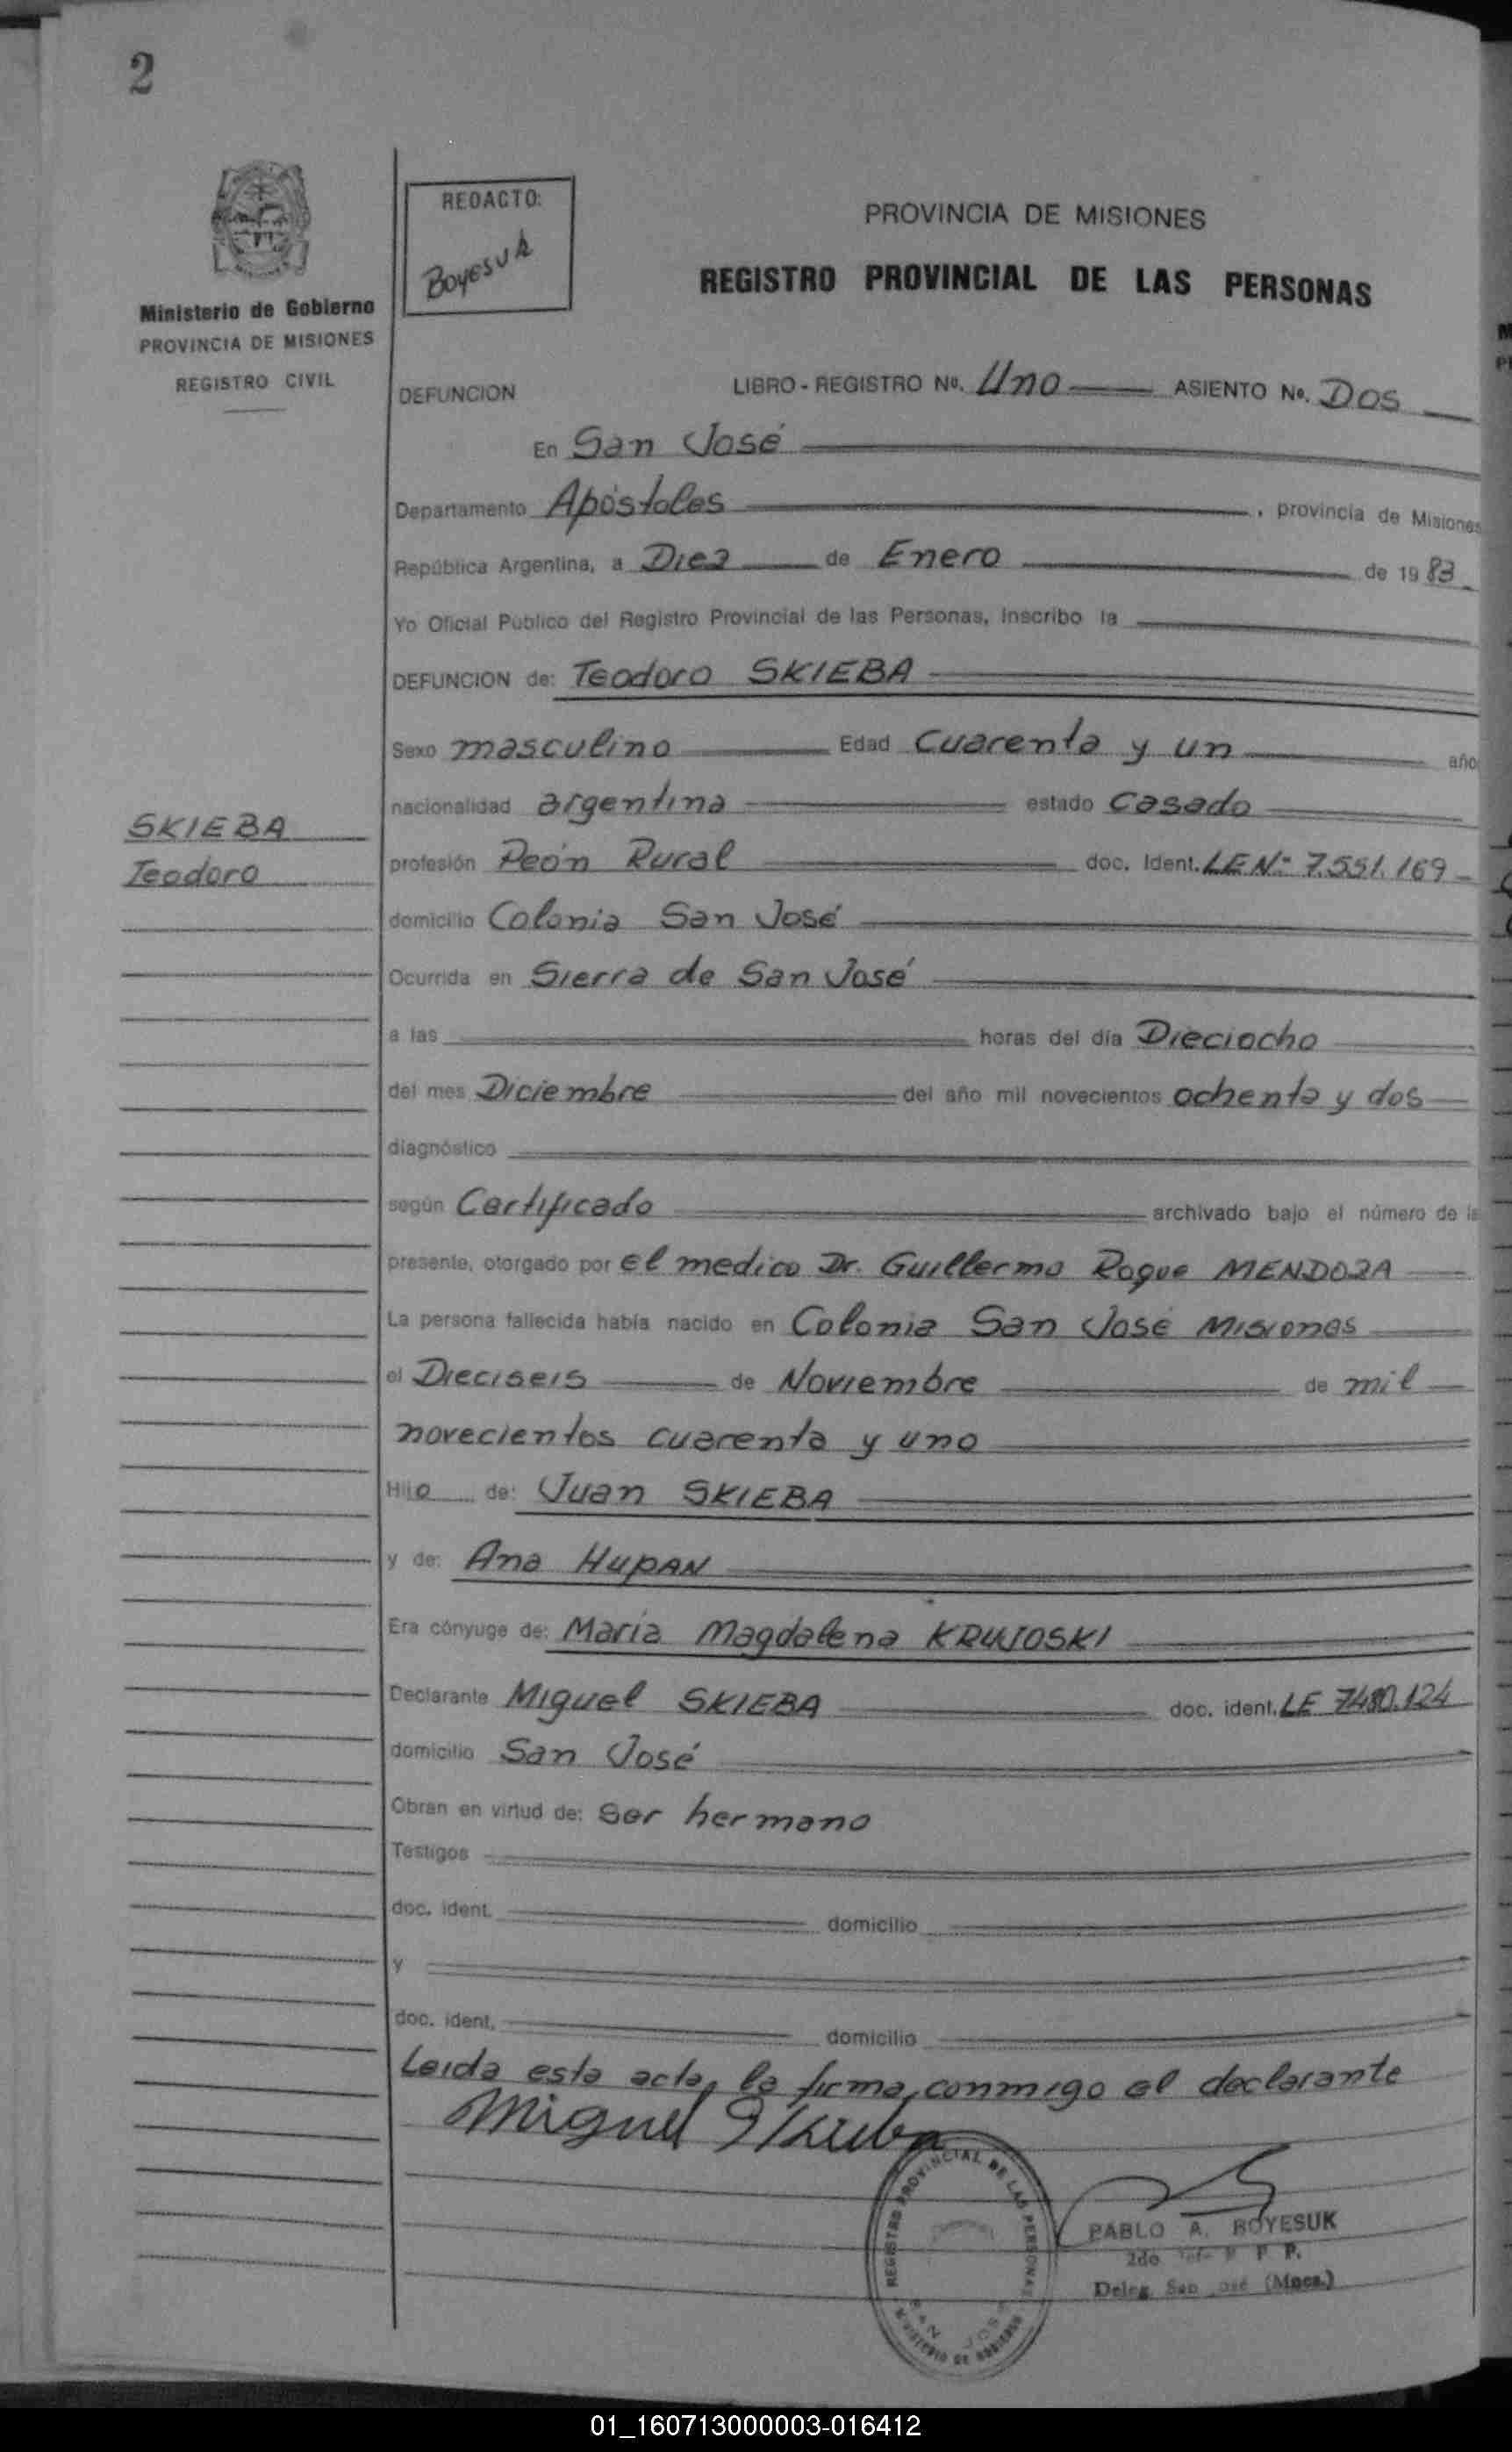 2
REDACTO:
Boyesuk
PROVINCIA DE MISIONES
REGISTRO PROVINCIAL DE LAS PERSONAS
Ministerio de Gobierno
PROVINCIA DE MISIONES
REGISTRO CIVIL
DEFUNCION LIBRO - REGISTRO Nº. Uno ASIENTO Nº. Dos
En San José
Departamento Apóstoles , provincia de Misiones
República Argentina, a Diez de Enero de 1983
Yo Oficial Público del Registro Provincial de las Personas, Inscribo la
DEFUNCION de: Teodoro SKIEBA
Sexo masculino Edad Cuarenta y un año
nacionalidad argentina estado Casado
SKIEBA
Teodoro
profesión Peón Rural doc. Ident. LE Nº 7.551.169
domicilio Colonia San José
Ocurrida en Sierra de San José
a las horas del día Dieciocho
del mes Diciembre del año mil novecientos ochenta y dos
diagnóstico
según Certificado archivado bajo el número de la
presente, otorgado por el medico Dr. Guillermo Roque MENDOZA
La persona fallecida había nacido en Colonia San José Misiones
el Dieciseis de Noviembre de mil
novecientos cuarenta y uno
Hijo de: Juan SKIEBA
y de: Ana HUPAN
Era cónyuge de: Maria Magdalena KRUJOSKI
Declarante Miguel SKIEBA doc. ident. LE 7480.124
domicilio San José
Obran en virtud de: Ser hermano
Testigos
doc. ident. domicilio
y
doc. ident. domicilio
Leida esta acta, la firma, conmigo el declarante
Miguel Skieba
REGISTRO PROVINCIAL DE LAS PERSONAS
SAN JOSE
MINISTERIO DE GOBIERNO
PABLO A. BOYESUK
2do. P. P.
Deleg. San José (Mnes.)
01_160713000003-016412